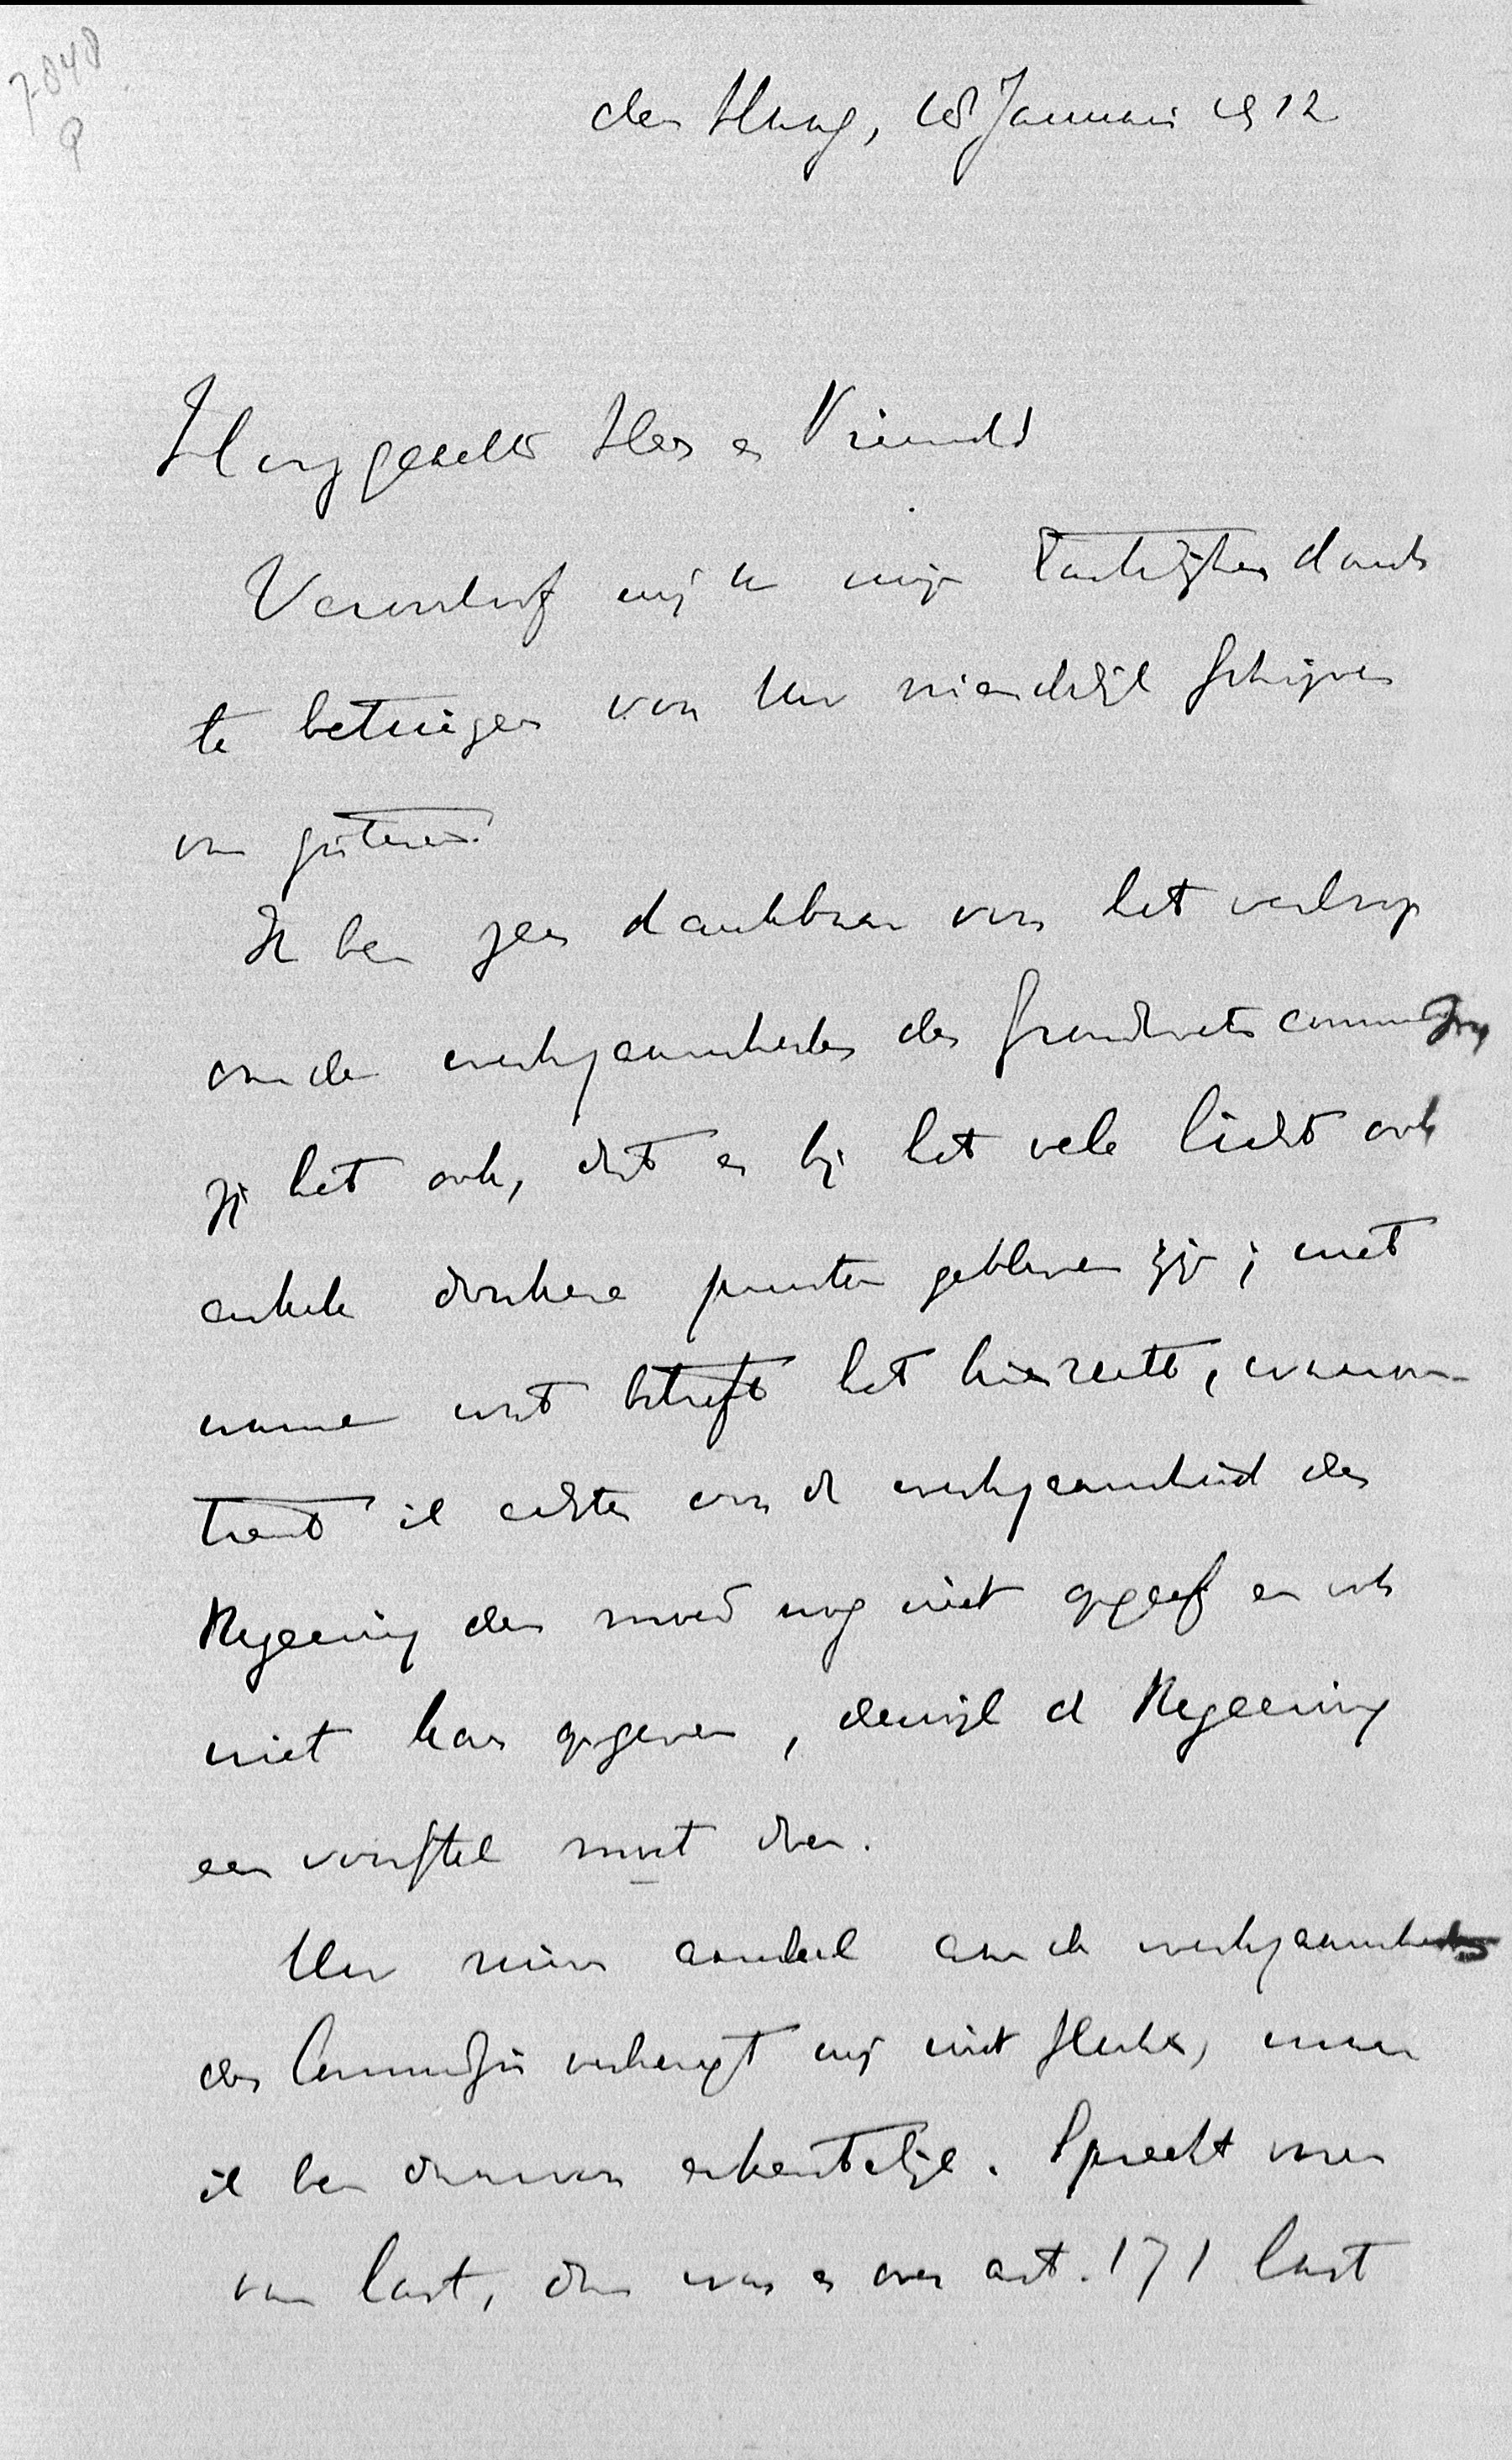 7848
9
den Haag, 18 Januari 1912
Hooggeachte Heer en Vriend!
Veroorloof mij U mijn hartelijken dank
te betuigen voor Uw vriendelijk schrijven
van gisteren.
Ik ben zeer dankbaar voor het verloop
van de werkzaamheden der Grondwetscommissie
zij het ook, dat er bij het vele licht ook
enkele donkere punten gebleven zijn; met
name wat betreft het kiesrecht, waarom-
trent ik echter voor de werkzaamheid der
Regeering den moed nog niet opgeef en ook
niet kan opgeven, dewijl de Regeering
een voorstel moet doen.
Uw ruim aandeel aan de werkzaamheden
der Commissie verheugt mij niet slechts, maar
ik ben daarvoor erkentelijk. Spreekt men
van last, dan was er over art. 171 last